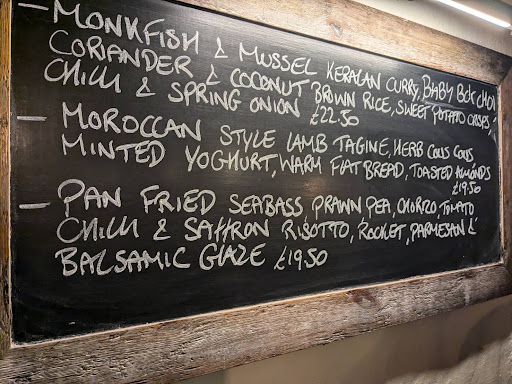 - MONKFISH & MUSSEL KERALAN CURRY, BABY BOK CHOI
CORIANDER & COCONUT BROWN RICE, SWEET POTATO CRISPS,
CHILLI & SPRING ONION £22.50
- MOROCCAN STYLE LAMB TAGINE, HERB COUS COUS,
MINTED YOGHURT, WARM FLAT BREAD, TOASTED ALMONDS
£19.50
- PAN FRIED SEABASS, PRAWN PEA, CHORIZO, TOMATO
CHILLI & SAFFRON RISOTTO, ROCKET, PARMESAN &
BALSAMIC GLAZE £19.50